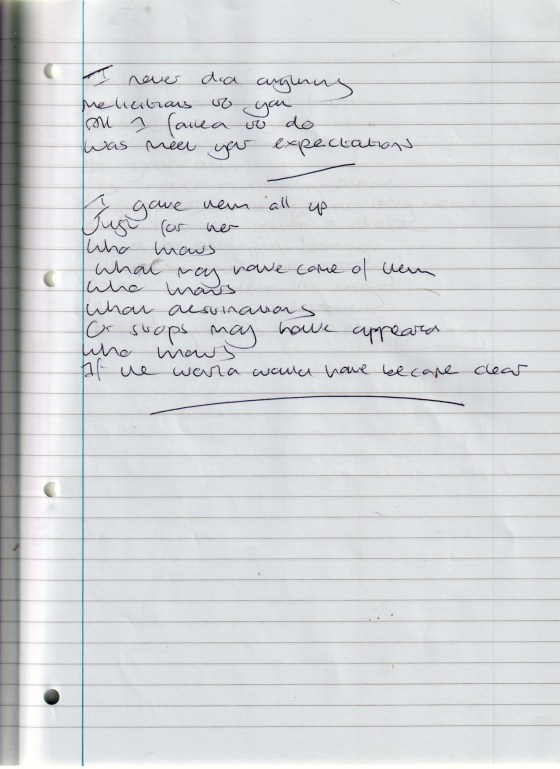 I never did anything
malicious to you
All I failed to do
Was meet your expectations
I gave them all up
Just for her
Who knows
What may have come of them
Who knows
What destinations
Or stops may have appeared
Who knows
If the world would have become clear